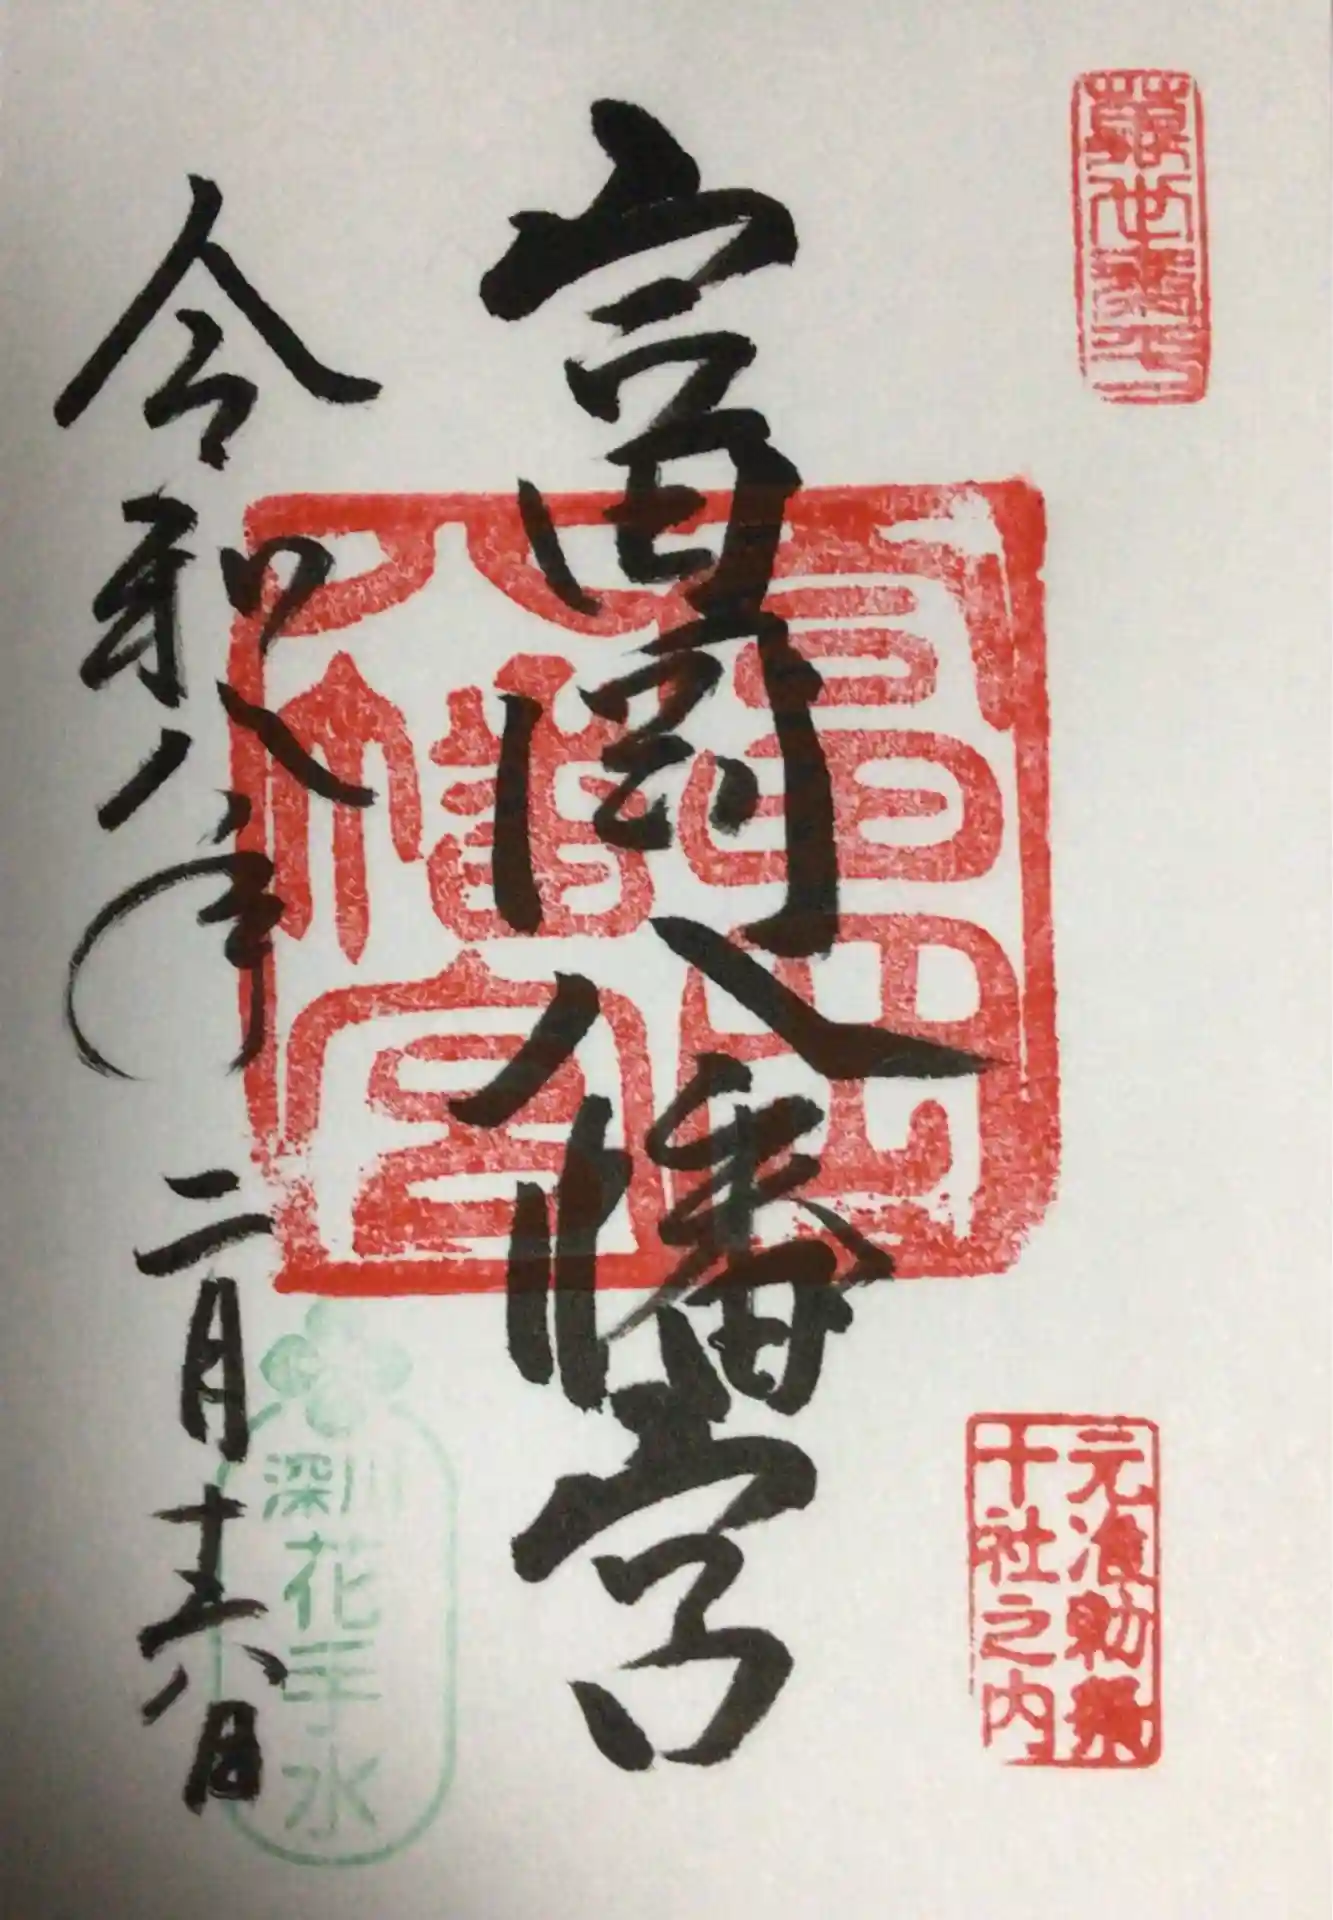 萬世泰平
元准勅祭
十社之内
富岡八幡宮
富岡
八幡宮
令和八年 二月十六日
深川
花手水